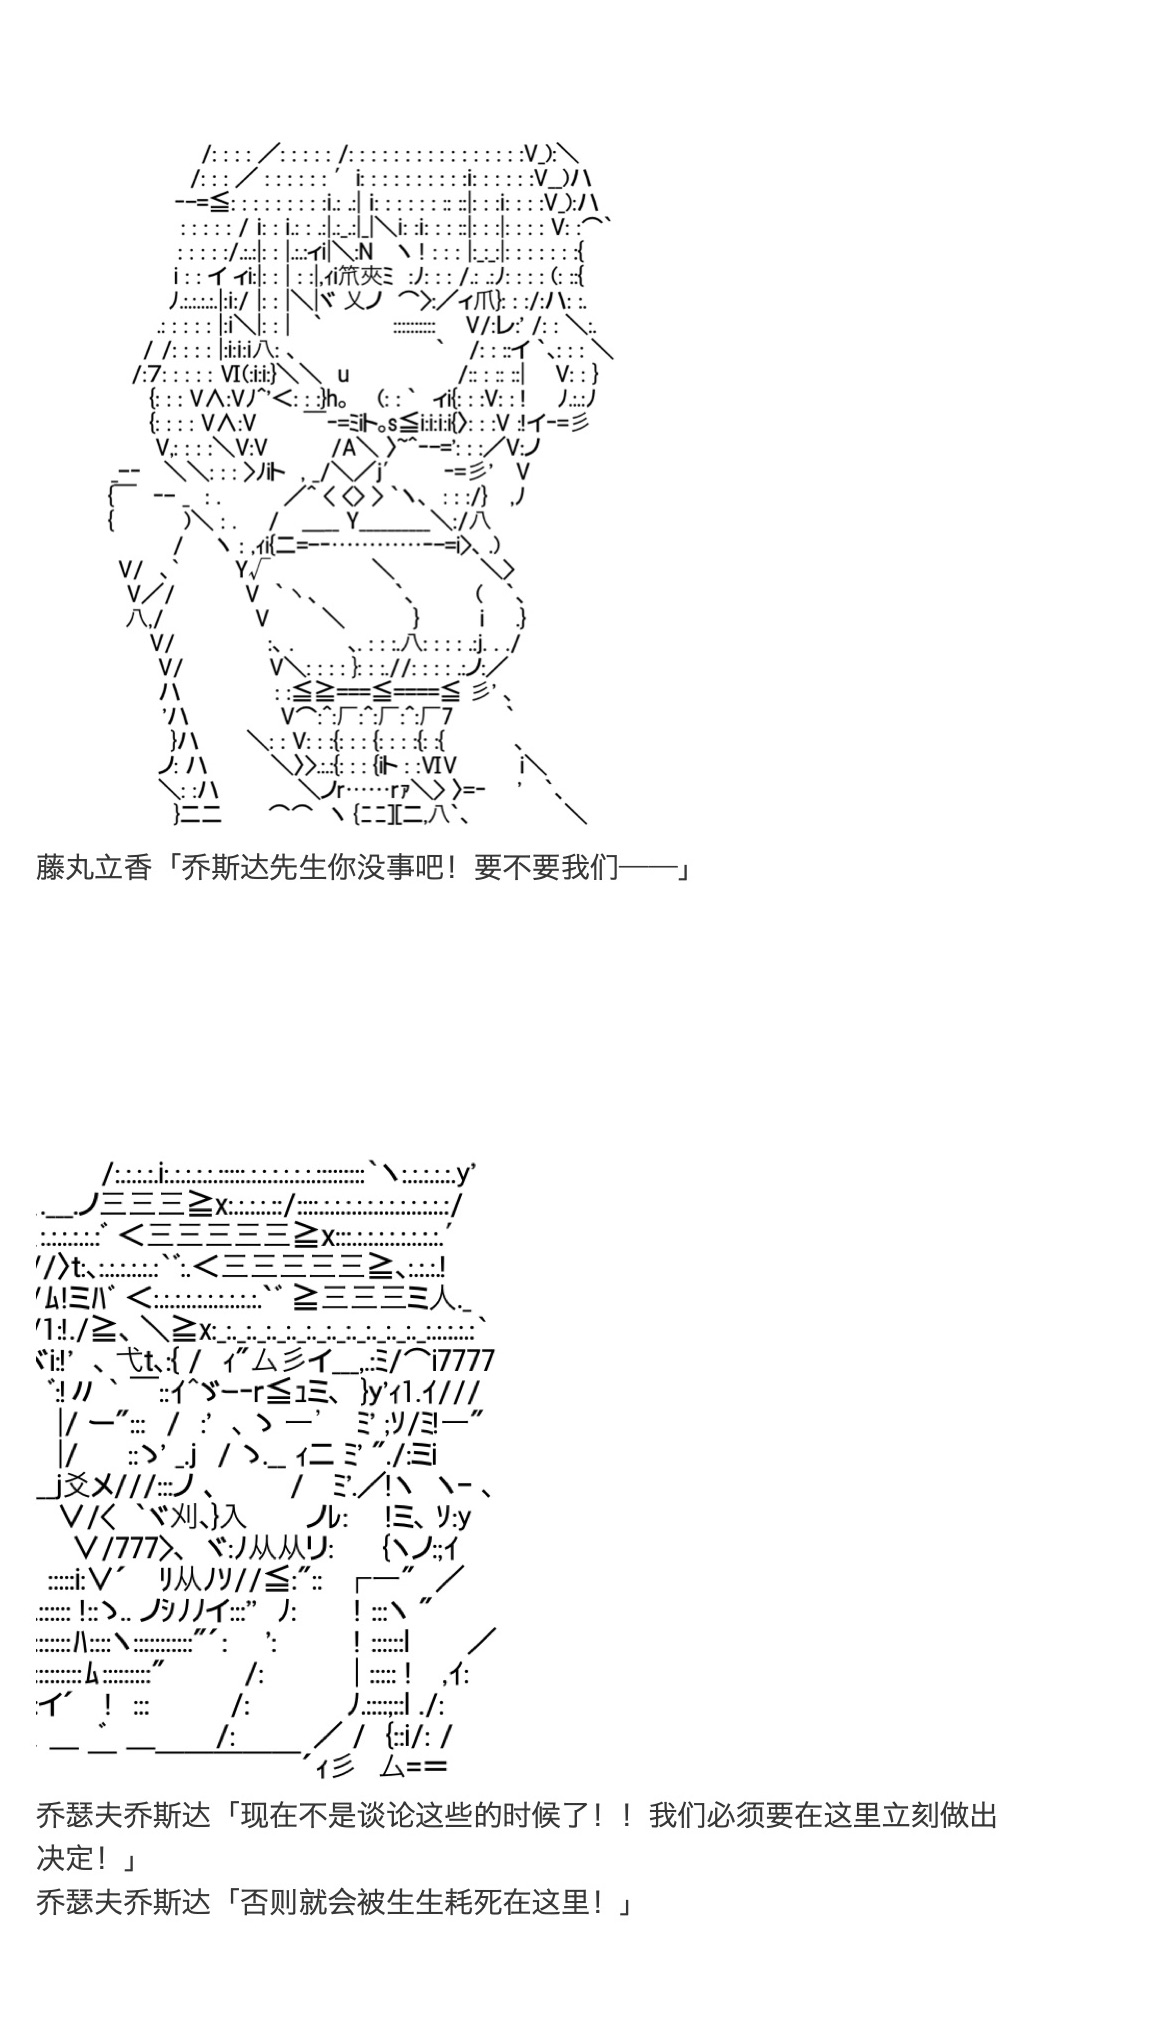 藤丸立香「乔斯达先生你没事吧！要不要我们——」
乔瑟夫乔斯达「现在不是谈论这些的时候了！！我们必须要在这里立刻做出
决定！」
乔瑟夫乔斯达「否则就会被生生耗死在这里！」